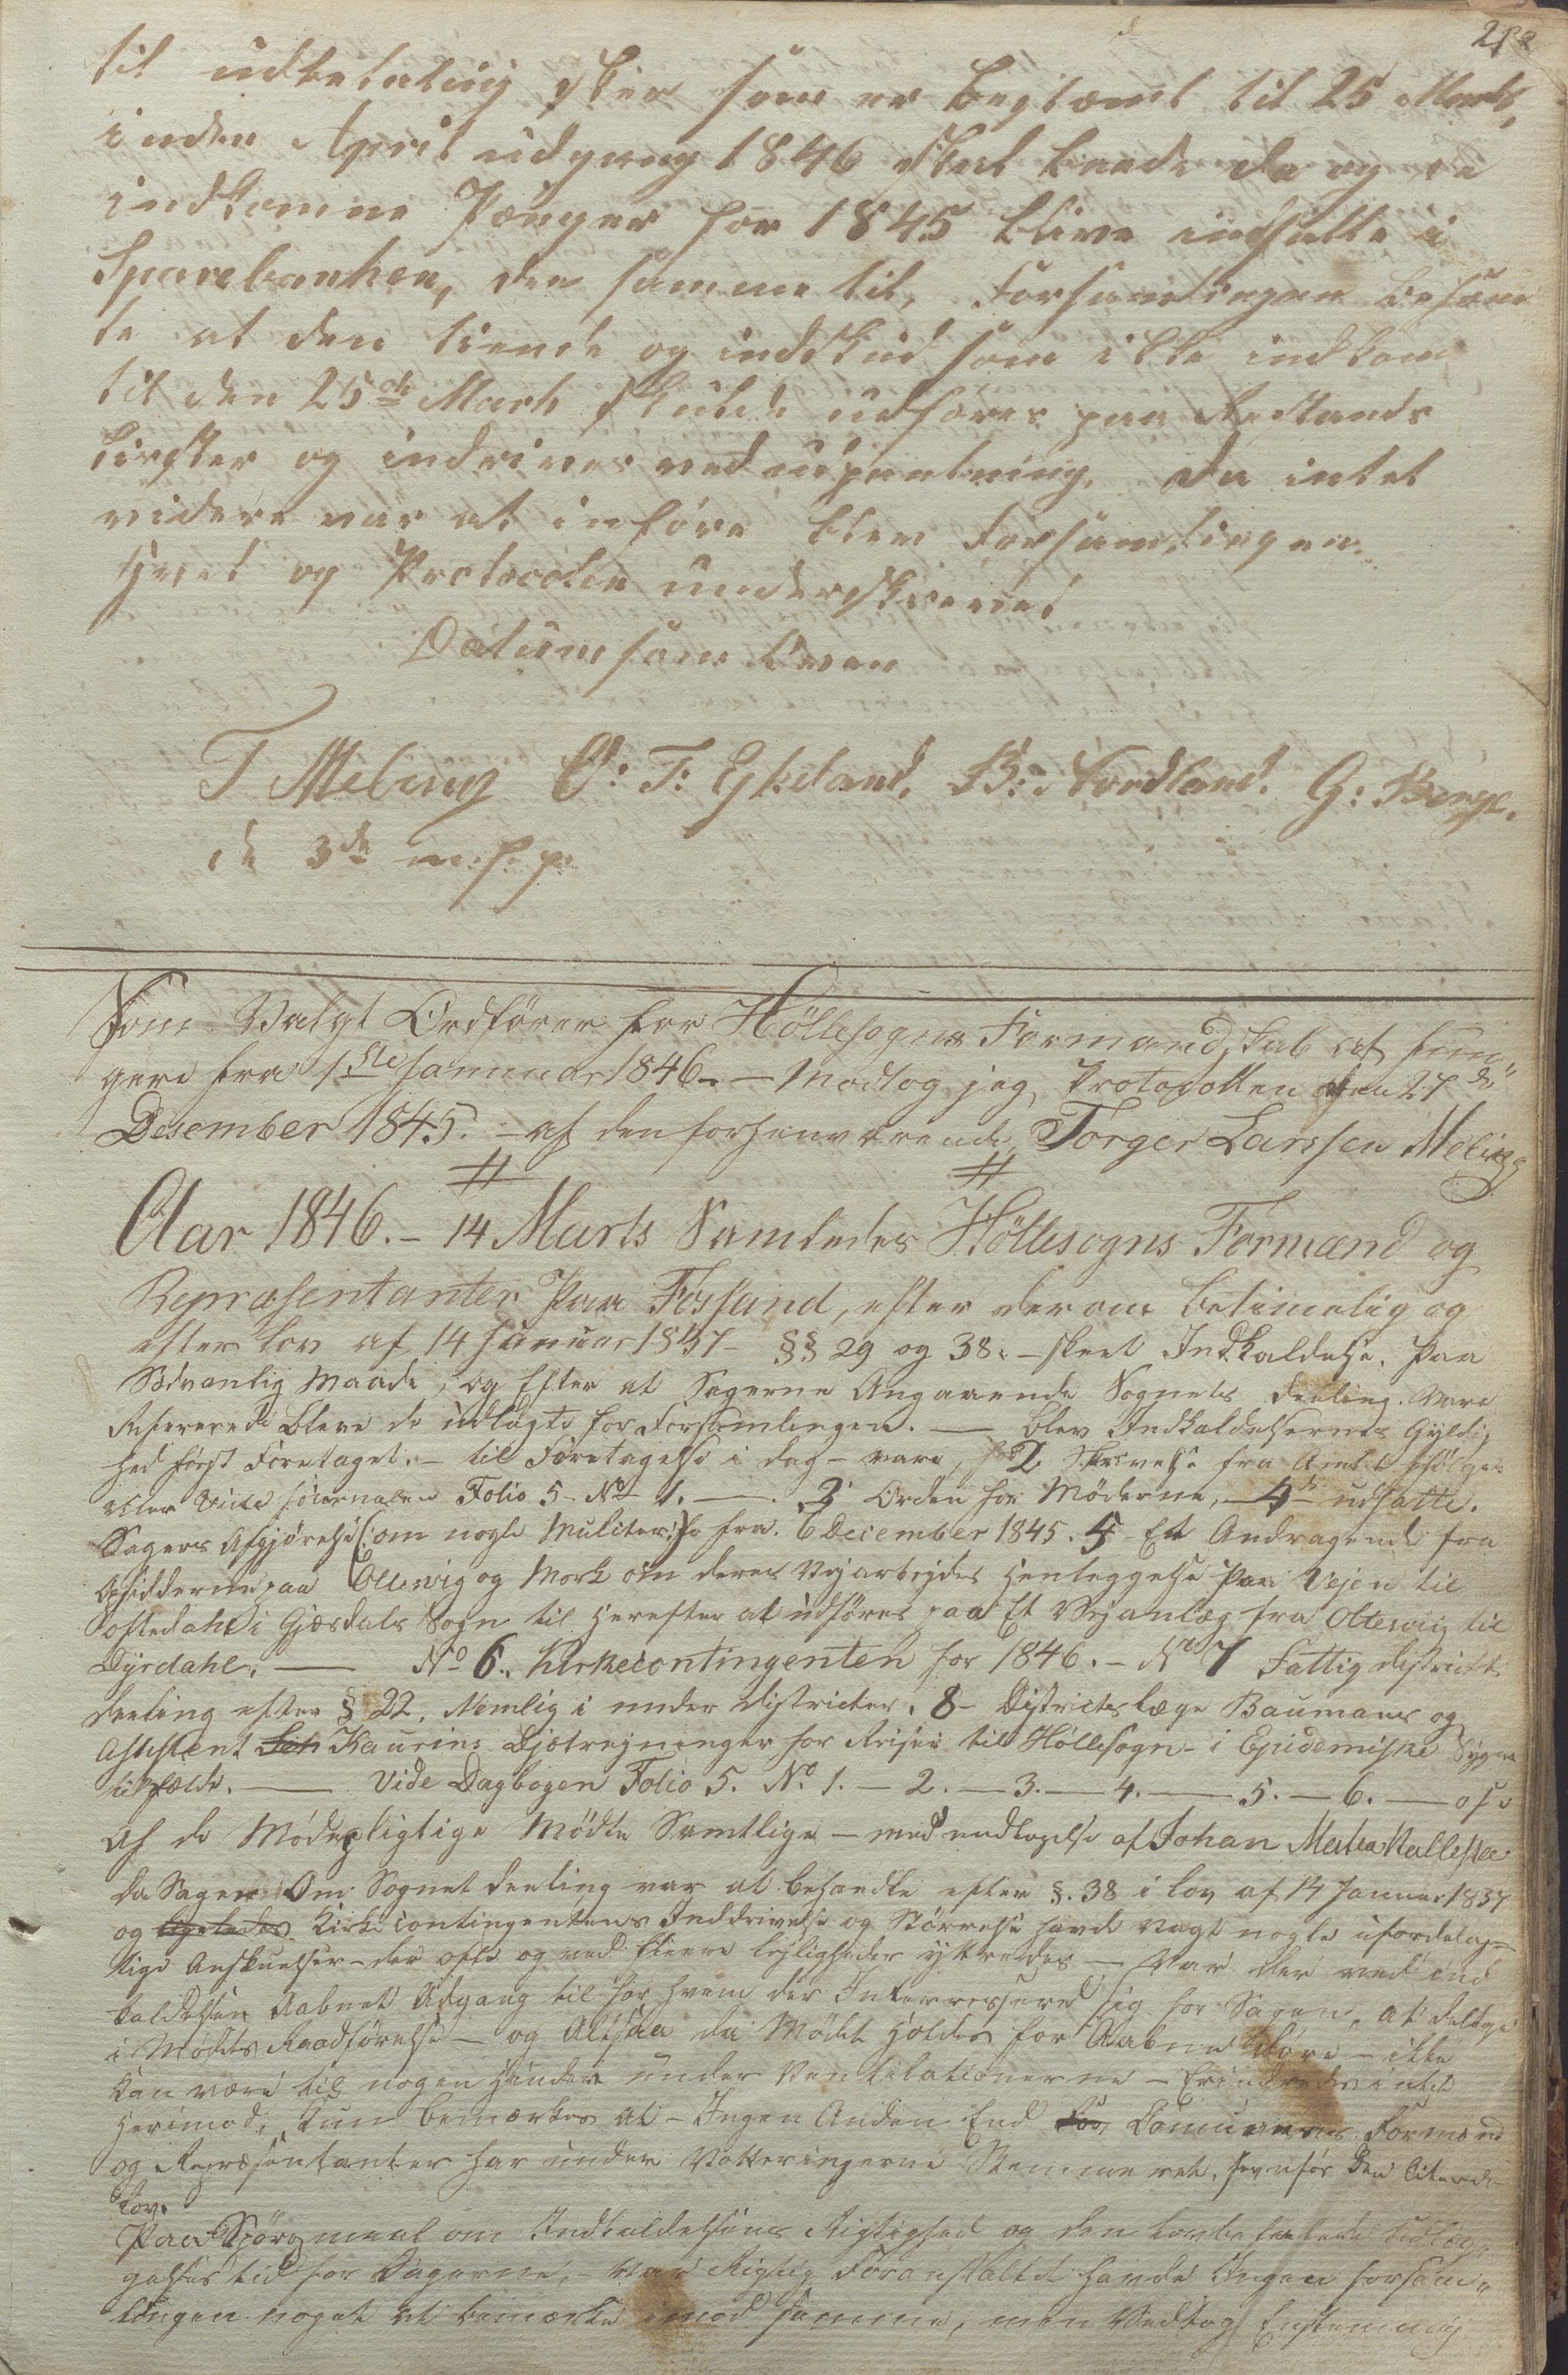 til udbetaling skeer som er bestemt til 25 Marts,
inden April udgang 1846 skal baade de og de
indkomne Penger for 1845 blive indsatte i
Sparebanken, den samme til, Forsamlingen bestem
te at den tiende og indskud som ikke indkom
til den 25de Marts skulde udføres paa Restands
Lister og indrives ved udpantning. Da intet
videre var at indføre blev Forsamlingen
hævet og Protocolen underskrevet
Datum som Oven
T Meling O: T: Eskeland. B: Nordland. G: Berge.
m. f. p.
Som Valgt Ordfører for Höllesogns Formandskab at fun"
gere fra 1ste Januar 1846. — Modtog jeg Protocollen den 27de
Desember 1845. — af den forhenværende Torger Larssen Meling
Aar 1846. – 14 Marts Samledes Höllesogns Formænd og
Repræsentanter Paa Fossand, efter derom betimelig og
efter lov af 14 Januar 1837 – §§ 29 og 38. – skeet Indkaldelse. Paa
Sædvanlig Maade, og Efter at Sagerne Angaaende Sognets deeling. Vare
Refererede bleve de udlagte for Forsamlingen. — blev Indkaldelsernes Gyldig
hed først Foretaget. – til Foretagelse i dag – vare, 2 Skrivelse fra Amtet ifølge
eller Vide Journalen Folio 5 – No 1. — 3 Orden for Møderne, – 4de udsatte.
Sagers Afgjørelse (: om nogle Muleter :) fra 6 December 1845. 5 – Et Andragende fra
Opsidderne paa Oltesvig og Mork om deres Vejarbejdes Henleggelse Paa Vejen til
Oftedahl i Gjesdals Sogn til Herefter at udføres paa Et Vejanlæg fra Oltesvig til
Dyrdahl. — No 6. Kirkecontingenten for 1846. – No 7 Fattig districts
deeling efter § 22. Nemlig i under districter. 8 – Districtslæge Baumans og
Assistent Kaurins Diætregninger for Reiser til Höllesogn – i Epidemiske Syge
tilfælde. — Vide Dagbogen Folio 5. No. 1. – 2. – 3. – 4. – 5. – 6. — osv
Af de Mødepligtige Mødte Samtlige – med undtagelse af Johan
da Sagen Om Sognet deeling var at behandle efter §. 38 i lov af 14 Januar 1837
og Kirkecontingentens Inddrivelse og Størrelse havde vagt nogle ufordelag=
tige Anskuelser – der ofte og ved fleere lejligheder yttredes — Var der ved ind
kaldelsen Aabnet Adgang til for hvem der Interressered sig for Sagen, at deltage
i Mødets Raadførelse – og Altsaa da Mødet holdes for Aabne døre – ikke
kan være til nogen Hinder under Ventilationerne – Erindredes intet
Herimod, Kun bemærkes at – Ingen Anden End Comunens Formænd
og Repræsentanter har under Votteringerne Stemmeret, jevnfør den Citerede
Lov.
Paa Spørgsmaal om Indkaldelsens Rigtighed og den lovbefalede Udlæg"
gelses tid for Sagerne, – var Rigtig Foranstaltet havde Ingen forsam"
lingen noget at bemærke imod samme, men Vedtog Enstemmig